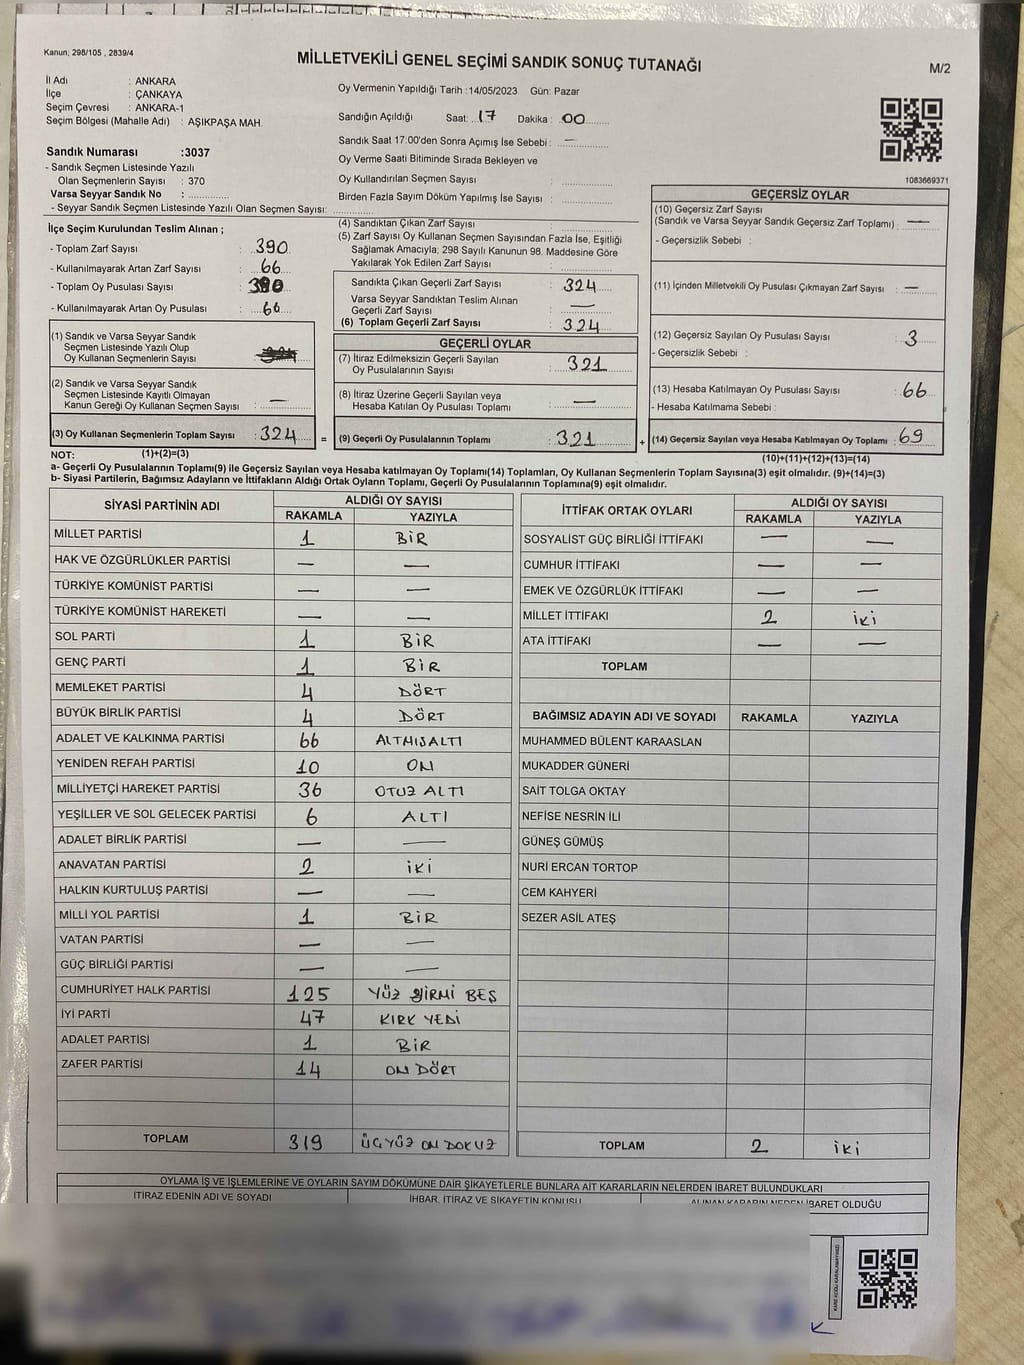 Kanun; 298/105 , 2839/4
MİLLETVEKİLİ GENEL SEÇİMİ SANDIK SONUÇ TUTANAĞI
M/2
İl Adı : ANKARA
İlçe : ÇANKAYA
Seçim Çevresi : ANKARA-1
Seçim Bölgesi (Mahalle Adı) : AŞIKPAŞA MAH.
Oy Vermenin Yapıldığı Tarih :14/05/2023 Gün: Pazar
Sandığın Açıldığı Saat: 17 Dakika : 00
Sandık Saat 17:00'den Sonra Açımış İse Sebebi : —
Oy Verme Saati Bitiminde Sırada Bekleyen ve
Oy Kullandırılan Seçmen Sayısı :
Birden Fazla Sayım Döküm Yapılmış İse Sayısı :
1083669371
Sandık Numarası :3037
- Sandık Seçmen Listesinde Yazılı
Olan Seçmenlerin Sayısı : 370
Varsa Seyyar Sandık No :
- Seyyar Sandık Seçmen Listesinde Yazılı Olan Seçmen Sayısı:
İlçe Seçim Kurulundan Teslim Alınan ;
- Toplam Zarf Sayısı : 390
- Kullanılmayarak Artan Zarf Sayısı : 66
- Toplam Oy Pusulası Sayısı : 390
- Kullanılmayarak Artan Oy Pusulası : 66
(1) Sandık ve Varsa Seyyar Sandık
Seçmen Listesinde Yazılı Olup
Oy Kullanan Seçmenlerin Sayısı :
(2) Sandık ve Varsa Seyyar Sandık
Seçmen Listesinde Kayıtlı Olmayan
Kanun Gereği Oy Kullanan Seçmen Sayısı : —
(3) Oy Kullanan Seçmenlerin Toplam Sayısı : 324 =
(4) Sandıktan Çıkan Zarf Sayısı :
(5) Zarf Sayısı Oy Kullanan Seçmen Sayısından Fazla İse, Eşitliği
Sağlamak Amacıyla; 298 Sayılı Kanunun 98. Maddesine Göre
Yakılarak Yok Edilen Zarf Sayısı :
Sandıkta Çıkan Geçerli Zarf Sayısı : 324
Varsa Seyyar Sandıktan Teslim Alınan
Geçerli Zarf Sayısı : —
(6) Toplam Geçerli Zarf Sayısı : 324
GEÇERLİ OYLAR
(7) İtiraz Edilmeksizin Geçerli Sayılan
Oy Pusulalarının Sayısı : 321
(8) İtiraz Üzerine Geçerli Sayılan veya
Hesaba Katılan Oy Pusulası Toplamı : —
(9) Geçerli Oy Pusulalarının Toplamı : 321 +
GEÇERSİZ OYLAR
(10) Geçersiz Zarf Sayısı
(Sandık ve Varsa Seyyar Sandık Geçersiz Zarf Toplamı) : —
- Geçersizlik Sebebi :
(11) İçinden Milletvekili Oy Pusulası Çıkmayan Zarf Sayısı : —
(12) Geçersiz Sayılan Oy Pusulası Sayısı : 3
- Geçersizlik Sebebi :
(13) Hesaba Katılmayan Oy Pusulası Sayısı : 66
- Hesaba Katılmama Sebebi :
(14) Geçersiz Sayılan veya Hesaba Katılmayan Oy Toplamı : 69
NOT: (1)+(2)=(3)
(10)+(11)+(12)+(13)=(14)
a- Geçerli Oy Pusulalarının Toplamı(9) ile Geçersiz Sayılan veya Hesaba katılmayan Oy Toplamı(14) Toplamları, Oy Kullanan Seçmenlerin Toplam Sayısına(3) eşit olmalıdır. (9)+(14)=(3)
b- Siyasi Partilerin, Bağımsız Adayların ve İttifakların Aldığı Ortak Oyların Toplamı, Geçerli Oy Pusulalarının Toplamına(9) eşit olmalıdır.
SİYASİ PARTİNİN ADI ALDIĞI OY SAYISI
RAKAMLA YAZIYLA
MİLLET PARTİSİ 1 BİR
HAK VE ÖZGÜRLÜKLER PARTİSİ — —
TÜRKİYE KOMÜNİST PARTİSİ — —
TÜRKİYE KOMÜNİST HAREKETİ — —
SOL PARTİ 1 BİR
GENÇ PARTİ 1 BİR
MEMLEKET PARTİSİ 4 DÖRT
BÜYÜK BİRLİK PARTİSİ 4 DÖRT
ADALET VE KALKINMA PARTİSİ 66 ALTMIŞALTI
YENİDEN REFAH PARTİSİ 10 ON
MİLLİYETÇİ HAREKET PARTİSİ 36 OTUZ ALTI
YEŞİLLER VE SOL GELECEK PARTİSİ 6 ALTI
ADALET BİRLİK PARTİSİ — —
ANAVATAN PARTİSİ 2 İKİ
HALKIN KURTULUŞ PARTİSİ — —
MİLLİ YOL PARTİSİ 1 BİR
VATAN PARTİSİ — —
GÜÇ BİRLİĞİ PARTİSİ — —
CUMHURİYET HALK PARTİSİ 125 YÜZ YİRMİ BEŞ
İYİ PARTİ 47 KIRK YEDİ
ADALET PARTİSİ 1 BİR
ZAFER PARTİSİ 14 ON DÖRT
TOPLAM 319 ÜÇYÜZ ON DOKUZ
İTTİFAK ORTAK OYLARI ALDIĞI OY SAYISI
RAKAMLA YAZIYLA
SOSYALİST GÜÇ BİRLİĞİ İTTİFAKI — —
CUMHUR İTTİFAKI — —
EMEK VE ÖZGÜRLÜK İTTİFAKI — —
MİLLET İTTİFAKI 2 İKİ
ATA İTTİFAKI — —
TOPLAM
BAĞIMSIZ ADAYIN ADI VE SOYADI RAKAMLA YAZIYLA
MUHAMMED BÜLENT KARAASLAN
MUKADDER GÜNERİ
SAİT TOLGA OKTAY
NEFİSE NESRİN İLİ
GÜNEŞ GÜMÜŞ
NURİ ERCAN TORTOP
CEM KAHYERİ
SEZER ASİL ATEŞ
TOPLAM 2 İKİ
OYLAMA İŞ VE İŞLEMLERİNE VE OYLARIN SAYIM DÖKÜMÜNE DAİR ŞİKAYETLERLE BUNLARA AİT KARARLARIN NELERDEN İBARET BULUNDUKLARI
İTİRAZ EDENİN ADI VE SOYADI İHBAR, İTİRAZ VE ŞİKAYETİN KONUSU ALINAN KARARIN NEDEN İBARET OLDUĞU